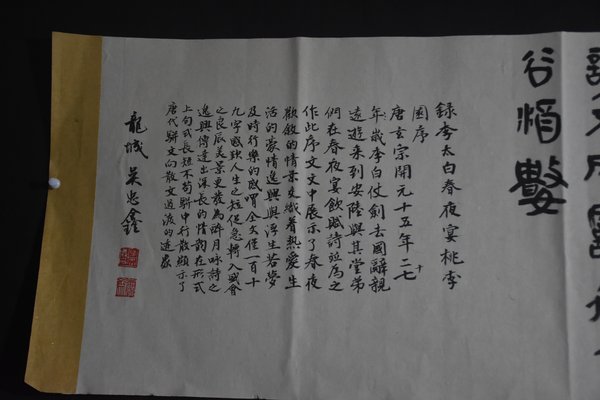 詩不成罰依
谷酒數
録李太白春夜宴桃李
園序
唐玄宗開元十五年二十七
年歲李白仗劍去國辭親
遠遊来到安陸與其堂弟
們在春夜宴飲賦詩並為之
作此序文文中展示了春夜
歡敘的情景交織着熱愛生
活的豪情逸興與浮生若夢
及時行樂的感喟全文僅一百十
九字感歎人生之短促急轉入盛會
之良辰美景更發為醉月咏詩之
逸興傳達出深長的情韵在形式
上句式長短不苟駢中行散顯示了
唐代駢文向散文過渡的迹象
龍城 吴忠鑫